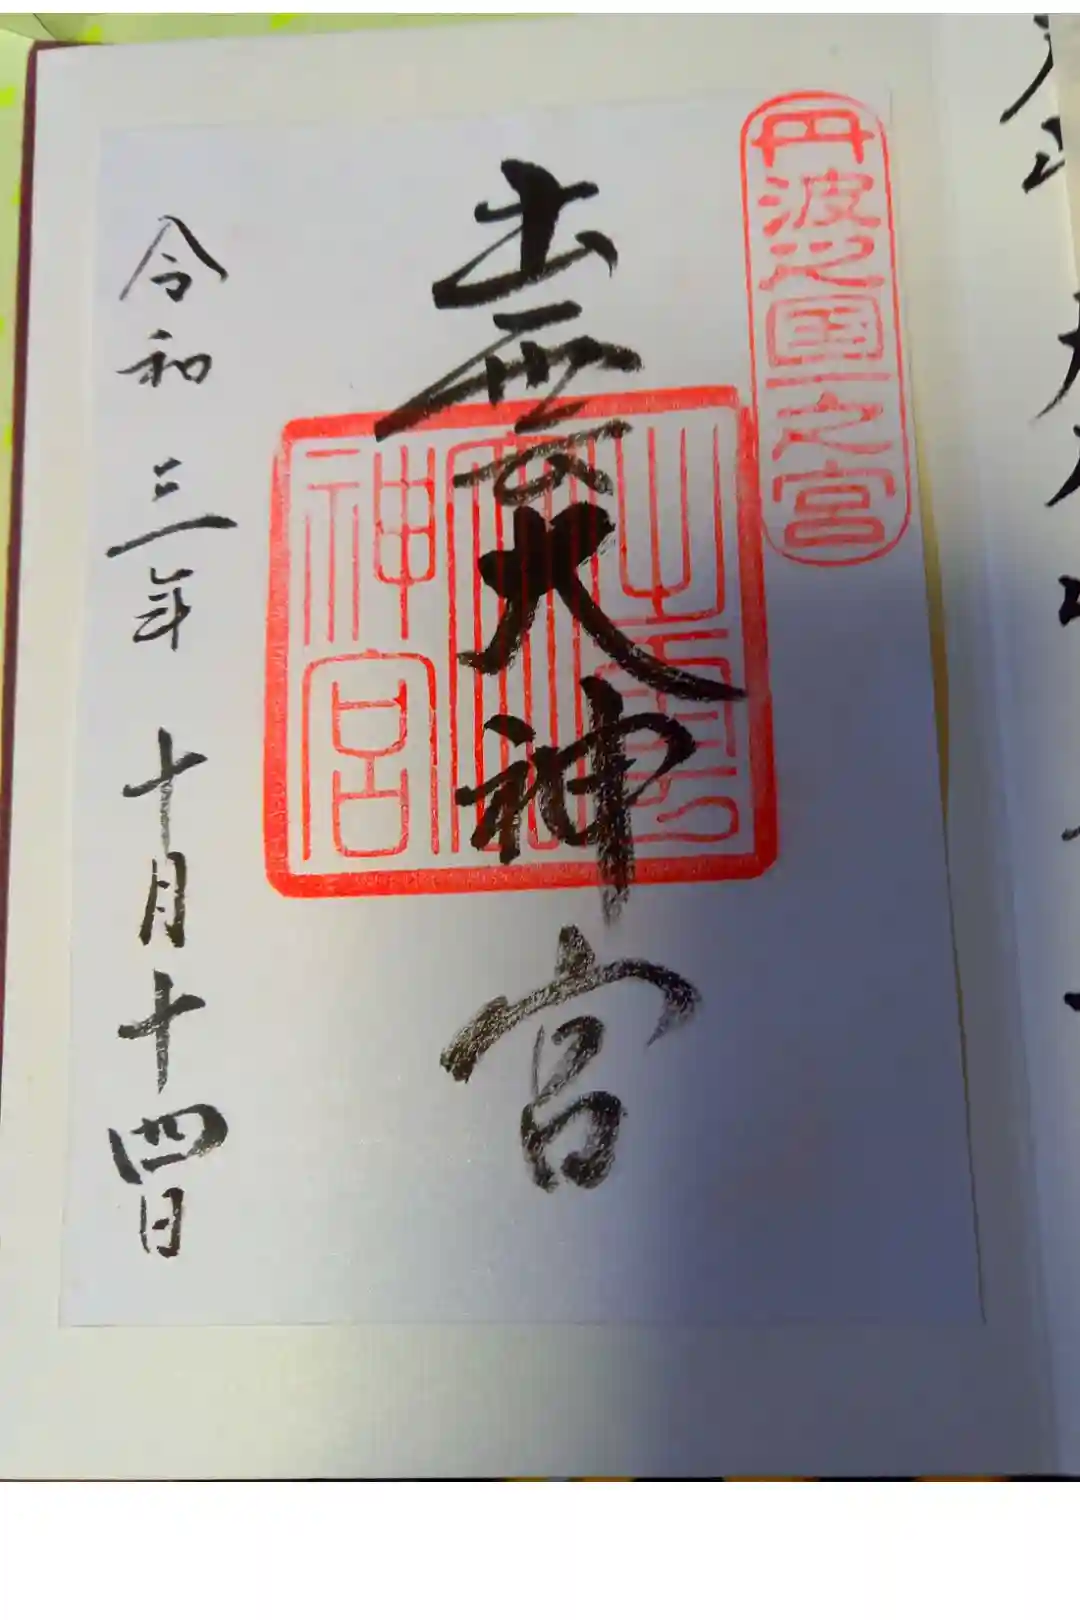 丹波之国一之宮
出雲大神宮
出雲大神宮
令和三年十月十四日